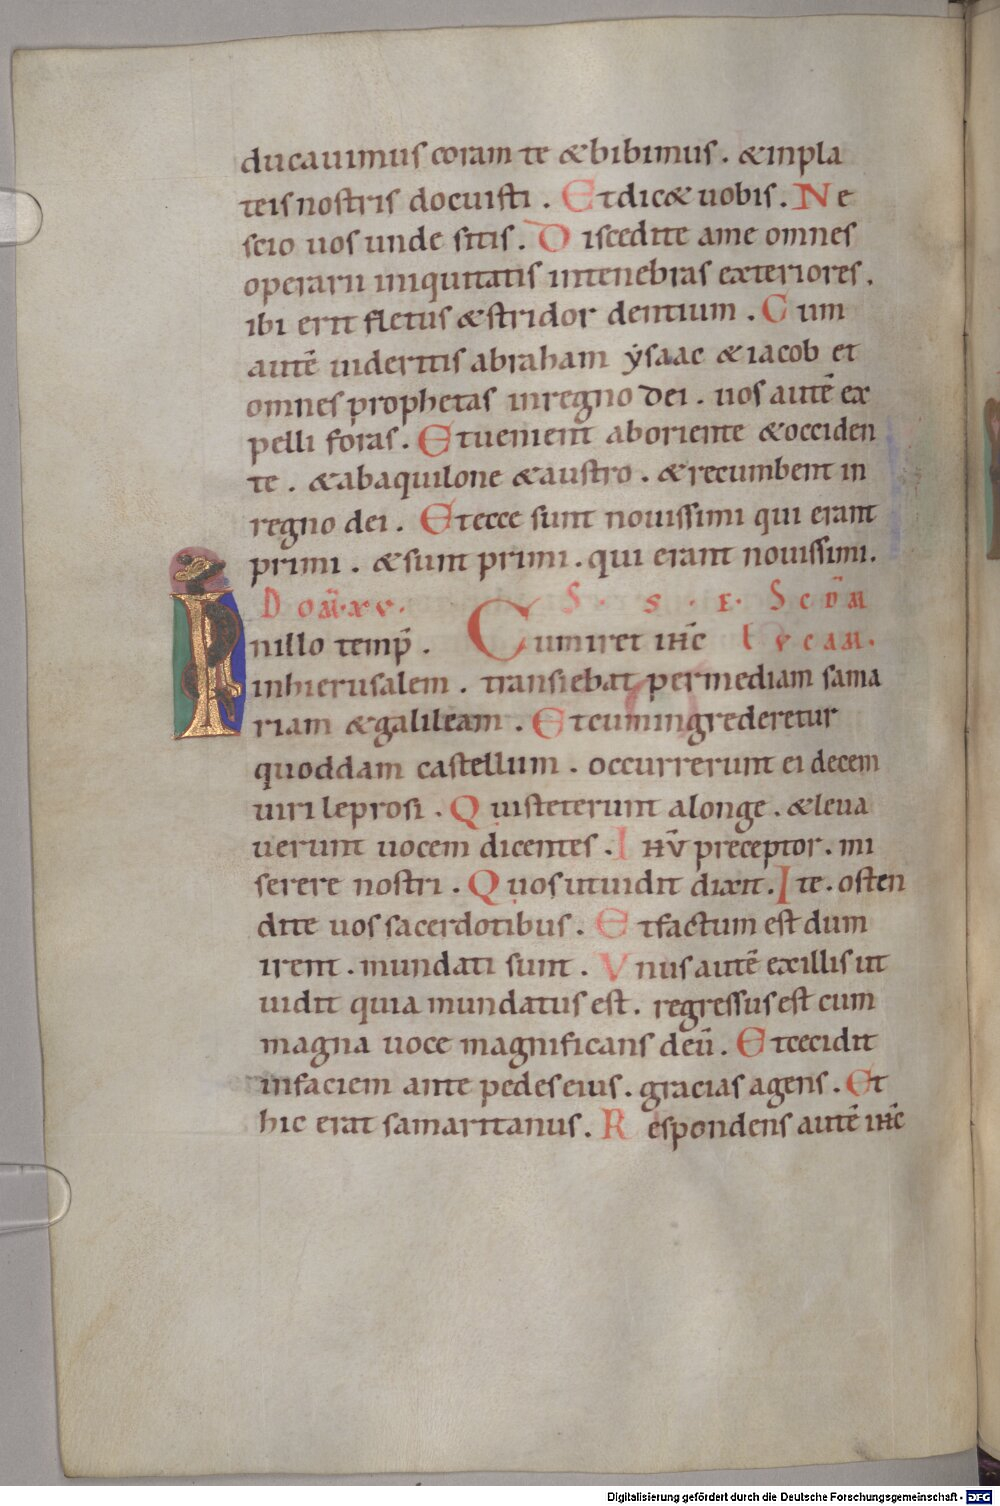 ducauimus coram te &bibimus. &inpla
teis nostris docuisti. Et dic& uobis. Ne
scio uos unde sitis. Discedite ame omnes
operarii iniquitatis intenebras exteriores.
ibi erit fletus &stridor dentium. Cum
autē uideritis abraham ẏsaac &iacob et
omnes prophetas inregno dei. uos autē ex
pelli foras. Et uenient aboriente &occiden
te. &abaquilone &austro. &recumbent in
regno dei. Et ecce sunt nouissimi qui erant
primi. &sunt primi. qui erant nouissimi.
Dom̄. xv. S. S. E. Scd̄m
Inillo temp̄. Cumiret ih̄c lvcam.
inhierusalem. transiebat permediam sama
riam &galileam. Et cumingrederetur
quoddam castellum. occurrerunt ei decem
uiri leprosi. Quisteterunt alonge. &leua
uerunt uocem dicentes. Ihv̄ preceptor. mi
serere nostri. Quos utuidit dixit. Ite. osten
dite uos sacerdotibus. Et factum est dum
irent. mundati sunt. Vnus autē exillis ut
uidit quia mundatus est. regressus est cum
magna uoce magnificans deū. Et cecidit
infaciem ante pedes eius. gracias agens. Et
hic erat samaritanus. Respondens autē ih̄c
Digitalisierung gefördert durch die Deutsche Forschungsgemeinschaft - DFG